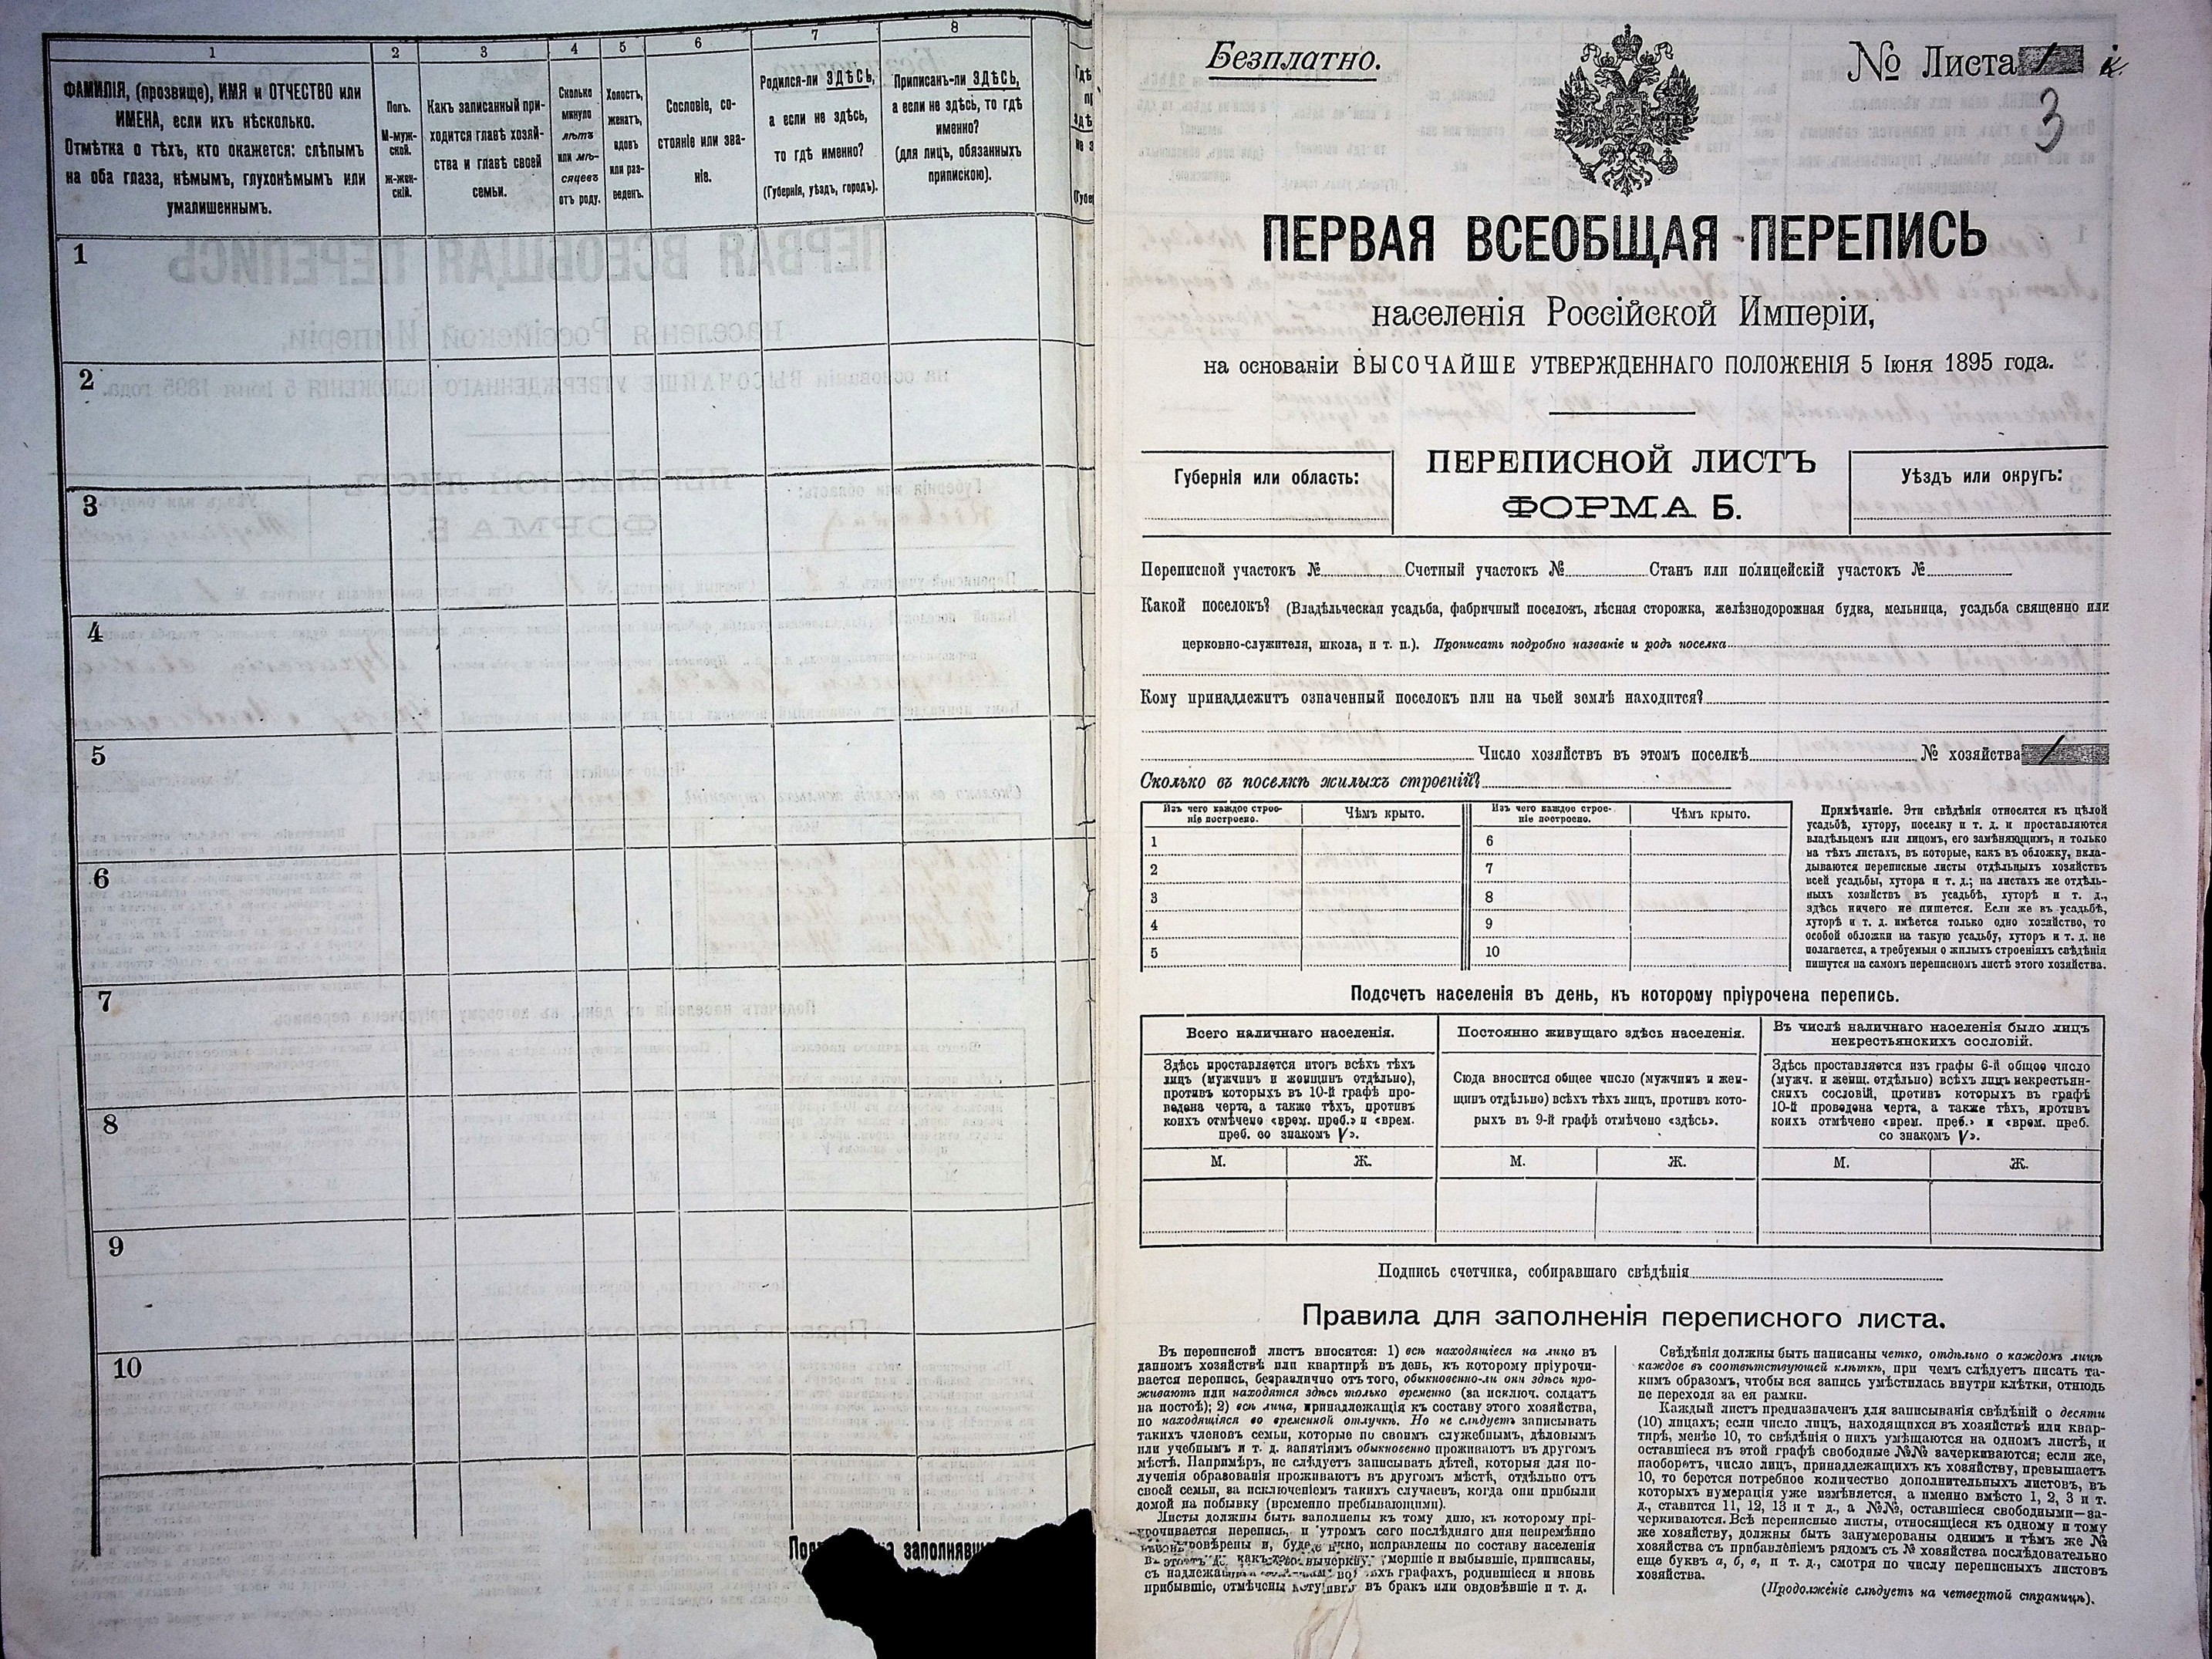 1 2 3 4 5 6 7 8
ФАМИЛІЯ, (прозвище), ИМЯ и ОТЧЕСТВО или
ИМЕНА, если ихъ нѣсколько.
Отмѣтка о тѣхъ, кто окажется: слѣпымъ
на оба глаза, нѣмымъ, глухонѣмымъ или
умалишеннымъ.
Полъ.
М-муж-
ской.
Ж-жен-
скій.
Какъ записанный при-
ходится главѣ хозяй-
ства и главѣ своей
семьи.
Сколько
минуло
лѣтъ
или мѣ-
сяцевъ
отъ роду.
Холостъ,
женатъ,
вдовъ
или раз-
веденъ.
Сословіе, со-
стояніе или зва-
ніе.
Родился-ли ЗДѢСЬ,
а если не здѣсь,
то гдѣ именно?
(Губернія, уѣздъ, городъ).
Приписанъ-ли ЗДѢСЬ,
а если не здѣсь, то гдѣ
именно?
(для лицъ, обязанныхъ
припискою).
1
2
3
4
5
6
7
8
9
10
заполнявш
Безплатно.
№ Листа 1
3
ПЕРВАЯ ВСЕОБЩАЯ ПЕРЕПИСЬ
населенія Россійской Имперіи,
на основаніи ВЫСОЧАЙШЕ УТВЕРЖДЕННАГО ПОЛОЖЕНІЯ 5 Іюня 1895 года.
Губернія или область:
ПЕРЕПИСНОЙ ЛИСТЪ
ФОРМА Б.
Уѣздъ или округъ:
Переписной участокъ № Счетный участокъ № Станъ или полицейскій участокъ №
Какой поселокъ? (Владѣльческая усадьба, фабричный поселокъ, лѣсная сторожка, желѣзнодорожная будка, мельница, усадьба священно или
церковно-служителя, школа, и т. п.). Прописать подробно названіе и родъ поселка
Кому принадлежитъ означенный поселокъ или на чьей землѣ находится?
Число хозяйствъ въ этомъ поселкѣ № хозяйства 1
Сколько въ поселкѣ жилыхъ строеній?
Изъ чего каждое строе-
ніе построено.
Чѣмъ крыто.
Изъ чего каждое строе-
ніе построено.
Чѣмъ крыто.
1 6
2 7
3 8
4 9
5 10
Примѣчаніе. Эти свѣдѣнія относятся къ цѣлой
усадьбѣ, хутору, поселку и т. д. и проставляются
владѣльцемъ или лицомъ, его замѣняющимъ, и только
на тѣхъ листахъ, въ которые, какъ въ обложку, вкла-
дываются переписные листы отдѣльныхъ хозяйствъ
всей усадьбы, хутора и т. д.; на листахъ же отдѣль-
ныхъ хозяйствъ въ усадьбѣ, хуторѣ и т. д.,
здѣсь ничего не пишется. Если же въ усадьбѣ,
хуторѣ и т. д. имѣется только одно хозяйство, то
особой обложки на такую усадьбу, хуторъ и т. д. не
полагается, а требуемыя о жилыхъ строеніяхъ свѣдѣнія
пишутся на самомъ переписномъ листѣ этого хозяйства.
Подсчетъ населенія въ день, къ которому пріурочена перепись.
Всего наличнаго населенія.
Здѣсь проставляется итогъ всѣхъ тѣхъ
лицъ (мужчинъ и женщинъ отдѣльно),
противъ которыхъ въ 10-й графѣ про-
ведена черта, а также тѣхъ, противъ
коихъ отмѣчено «врем. преб.» и «врем.
преб. со знакомъ V».
Постоянно живущаго здѣсь населенія.
Сюда вносится общее число (мужчинъ и жен-
щинъ отдѣльно) всѣхъ тѣхъ лицъ, противъ кото-
рыхъ въ 9-й графѣ отмѣчено «здѣсь».
Въ числѣ наличнаго населенія было лицъ
некрестьянскихъ сословій.
Здѣсь проставляется изъ графы 6-й общее число
(мужч. и женщ. отдѣльно) всѣхъ лицъ некрестьян-
скихъ сословій, противъ которыхъ въ графѣ
10-й проведена черта, а также тѣхъ, противъ
коихъ отмѣчено «врем. преб.» и «врем. преб.
со знакомъ V».
М. Ж. М. Ж. М. Ж.
Подпись счетчика, собиравшаго свѣдѣнія
Правила для заполненія переписного листа.
Въ переписной листъ вносятся: 1) всѣ находящіеся на лицо въ
данномъ хозяйствѣ или квартирѣ въ день, къ которому пріурочи-
вается перепись, безразлично отъ того, обыкновенно-ли они здѣсь про-
живаютъ или находятся здѣсь только временно (за исключ. солдатъ
на постоѣ); 2) всѣ лица, принадлежащія къ составу этого хозяйства,
но находящіяся во временной отлучкѣ. Но не слѣдуетъ записывать
такихъ членовъ семьи, которые по своимъ служебнымъ, дѣловымъ
или учебнымъ и т. д. занятіямъ обыкновенно проживаютъ въ другомъ
мѣстѣ. Напримѣръ, не слѣдуетъ записывать дѣтей, которыя для по-
лученія образованія проживаютъ въ другомъ мѣстѣ, отдѣльно отъ
своей семьи, за исключеніемъ такихъ случаевъ, когда они прибыли
домой на побывку (временно пребывающими).
Листы должны быть заполнены къ тому дню, къ которому прі-
урочивается перепись, и утромъ сего послѣдняго дня непремѣнно
провѣрены и, исправлены по составу населенія
въ умершіе и выбывшіе, приписаны,
съ графахъ, родившіеся и вновь
прибывшіе, отмѣчены въ бракъ или овдовѣвшіе и т. д.
Свѣдѣнія должны быть написаны четко, отдѣльно о каждомъ лицѣ
каждое въ соотвѣтствующей клѣткѣ, при чемъ слѣдуетъ писать та-
кимъ образомъ, чтобы вся запись умѣстилась внутри клѣтки, отнюдь
не переходя за ея рамки.
Каждый листъ предназначенъ для записыванія свѣдѣній о десяти
(10) лицахъ; если число лицъ, находящихся въ хозяйствѣ или квар-
тирѣ, менѣе 10, то свѣдѣнія о нихъ умѣщаются на одномъ листѣ, и
оставшіеся въ этой графѣ свободные №№ зачеркиваются; если же,
наоборотъ, число лицъ, принадлежащихъ къ хозяйству, превышаетъ
10, то берется потребное количество дополнительныхъ листовъ, въ
которыхъ нумерація уже измѣняется, а именно вмѣсто 1, 2, 3 и т.
д., ставится 11, 12, 13 и т д., а №№, оставшіеся свободными—за-
черкиваются. Всѣ переписные листы, относящіеся къ одному и тому
же хозяйству, должны быть занумерованы однимъ и тѣмъ же №
хозяйства съ прибавленіемъ рядомъ съ № хозяйства послѣдовательно
еще буквъ а, б, в, и т. д., смотря по числу переписныхъ листовъ
хозяйства.
(Продолженіе слѣдуетъ на четвертой страницѣ).